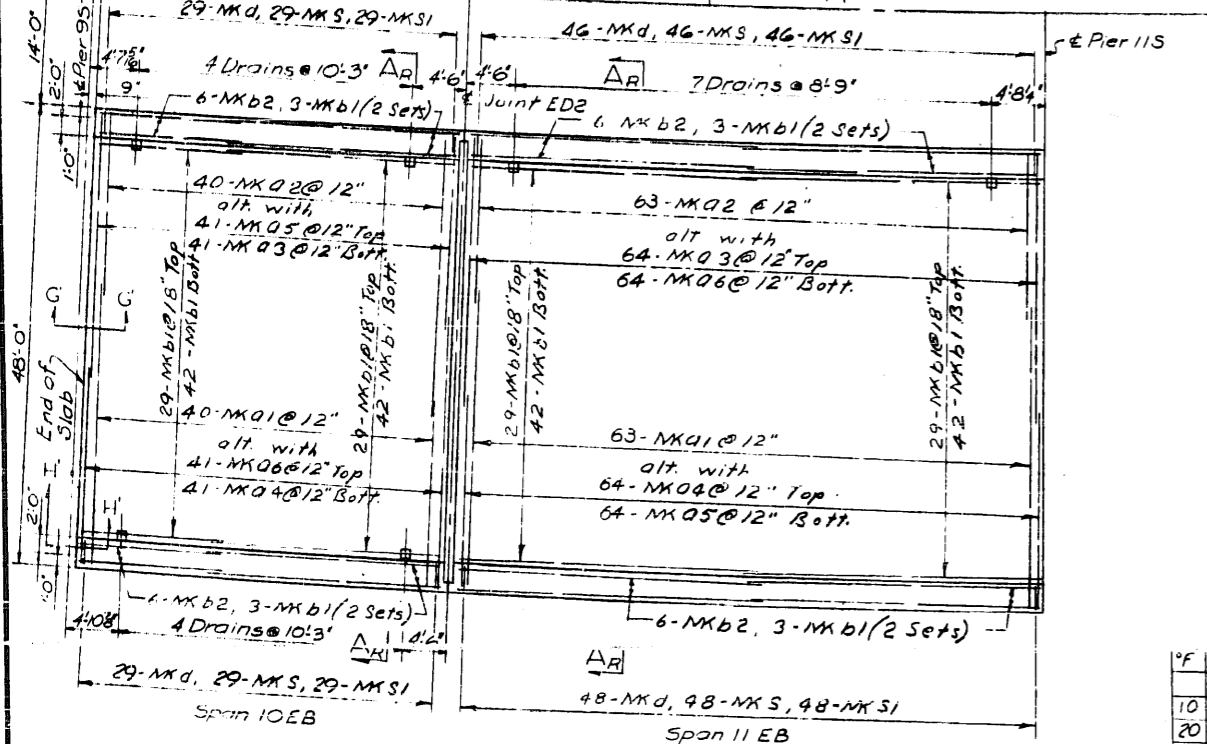 29-MKd, 29-MKS, 29-MKS1
46-MKd, 46-MKS, 46-MKS1
14'-0"
℄ Pier 9S
℄ Pier 11S
4 Drains @ 10'-3"
AR
4'-6"
4'-6"
AR
7 Drains @ 8'-9"
4'-8¼"
2'-0"
9"
6-MKb2, 3-MKb1 (2 Sets)
℄ Joint ED2
6 MKb2, 3-MKb1 (2 Sets)
1'-0"
40-MKa2 @ 12"
alt. with
41-MKa5 @ 12" Top
41-MKa3 @ 12" Bott.
63-MKa2 @ 12"
alt with
64-MKa3 @ 12" Top
64-MKa6 @ 12" Bott.
29-MKb1@18" Top
42-MKb1 Bott.
29-MKb1@18" Top
42-MKb1 Bott.
29-MKb1@18" Top
42-MKb1 Bott.
29-MKb1@18" Top
42-MKb1 Bott.
G
G
48'-0"
End of
Slab
40-MKa1 @ 12"
alt. with
41-MKa6@12" Top
41-MKa4@12" Bott.
63-MKa1 @ 12"
alt. with
64-MKa4 @ 12" Top
64-MKa5@ 12" Bott.
2'-0"
H
6-MKb2, 3-MKb1 (2 Sets)
6-MKb2, 3-MKb1 (2 Sets)
4 Drains @ 10'-3"
AR
AR
29-MKd, 29-MKS, 29-MKS1
48-MKd, 48-MKS, 48-MKS1
Span 10EB
Span 11 EB
°F
10
20